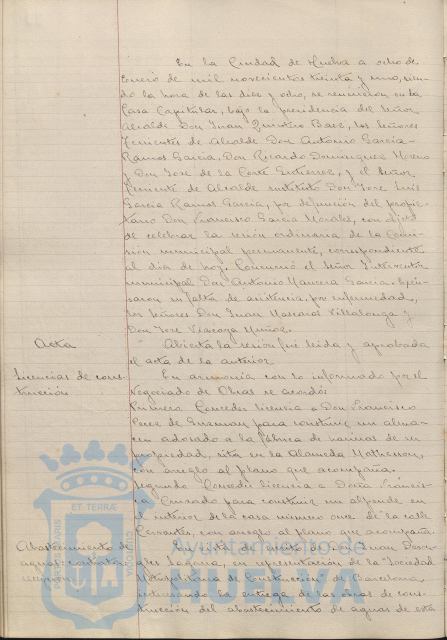 En la Ciudad de Huelva a ocho de
Enero de mil novecientos treinta y uno, sien-
do la hora de las diez y ocho, se reunieron en la
Casa Capitular, bajo la presidencia del Señor
Alcalde Don Juan Quintero Baez, los Señores
Tenientes de Alcalde Don Antonio Garcia-
Ramos Garcia, Don Ricardo Dominguez Moreno
y Don Jose de la Corte Gutierrez, y el Señor
Teniente de Alcalde sustituto Don Jose Luis
Garcia Ramos Garcia, por defunción del propie-
tario Don Francisco Garcia Morales, con objeto
de celebrar la sesión ordinaria de la Comi-
sión municipal permanente, correspondiente
al dia de hoy. Concurrió el Señor Interventor
municipal Don Antonio Mancera Garcia. Excu-
saron su falta de asistencia, por enfermedad,
los Señores Don Juan Mascaros Villalonga y
Don Jose Vizcaya Muñoz.
Acta
Abierta la sesión fué leida y aprobada
el acta de la anterior.
Licencias de cons-
trucción
En armonia con lo informado por el
Negociado de Obras se acordó:
Primero. Conceder licencia a Don Francisco
Perez de Guzman para construir un alma-
cen adosado a la fábrica de harinas de su
propiedad, sita en la Alameda Mathesson,
con arreglo al plano que acompaña.
Segundo. Concedir licencia a Doña Francis-
ca para construir un alpende en
el interior de la casa número once de la calle
Cervantes, con arreglo al plano que acompaña.
Abastecimiento de
aguas: contratacion
Vista de Don
Lagara, en representación de la Sociedad
Metropolitana de Construcción, de Barcelona,
la entrega de las obras de cons-
trucción del abastecimiento de aguas de esta
Ayuntamiento de
HUELVA
PORTUS MARIS
ET TERRÆ
CUSTODIA